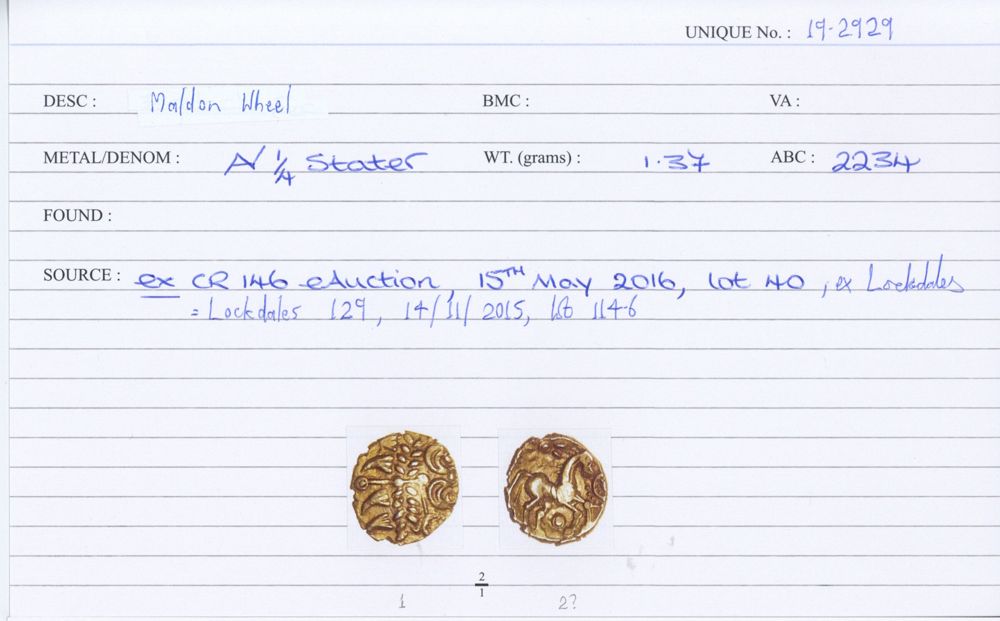 UNIQUE No. : 19-2929
DESC : Maldon Wheel BMC : VA :
METAL/DENOM : A/ 1/4 Stater WT. (grams) : 1.37 ABC : 2234
FOUND :
SOURCE : ex CR 146 eAuction, 15TH May 2016, lot 40, ex Lockdales
= Lockdales 129, 14/11/2015, lot 1146
2/1
1 2?